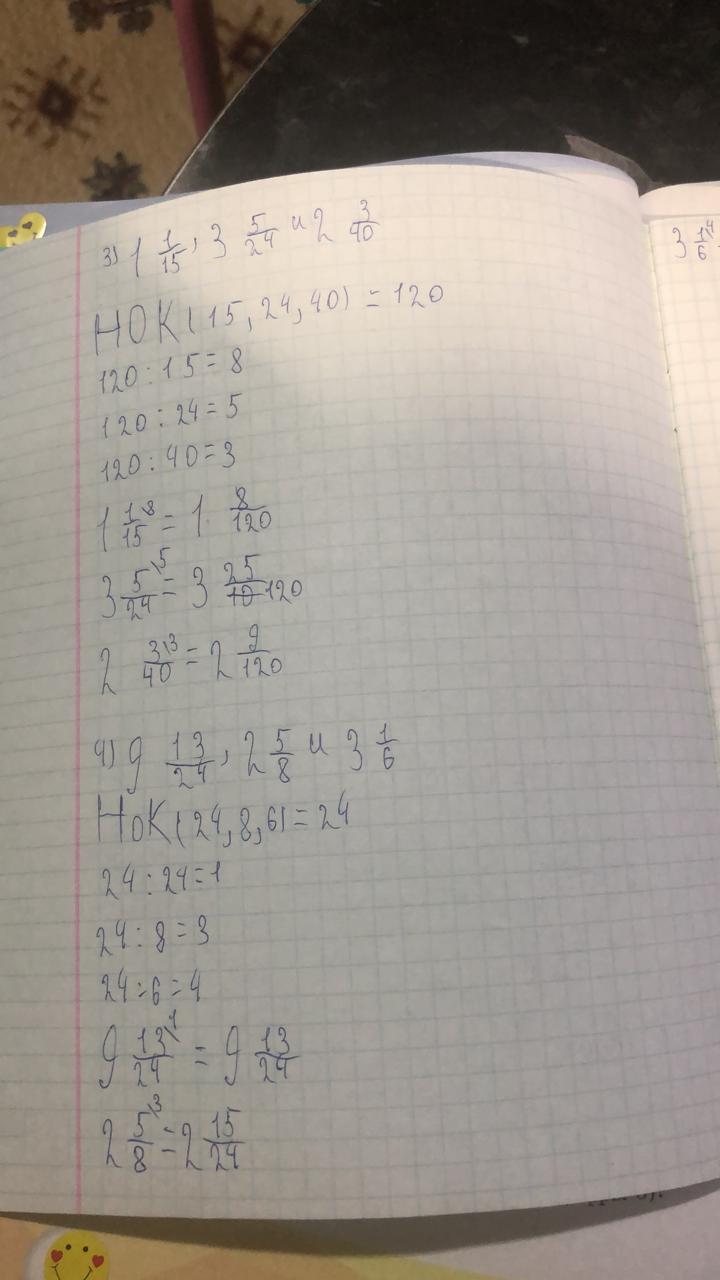 3) 1 1/15, 3 5/24 и 2 3/40
НОК(15,24,40) = 120
120:15=8
120:24=5
120:40=3
1 1\8/15 = 1. 8/120
3 5\5/24 = 3 25/120
2 3\3/40 = 2 9/120
4) 9 13/24, 2 5/8 и 3 1/6
НоК(24,8,6)=24
24:24=1
24:8=3
24:6=4
9 13\1/24 = 9 13/24
2 5\3/8 = 2 15/24
3 1\4/6